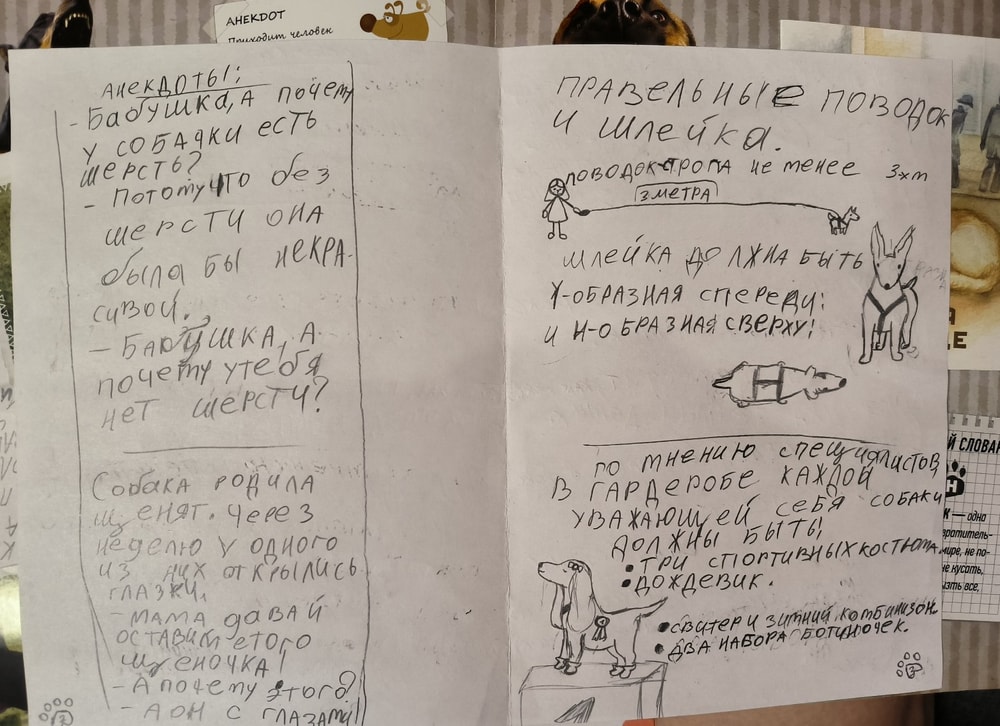 АНЕКДОТ
Приходит человек
АНЕКДОТЫ:
- БАБУШКА, А ПОЧЕМУ
У СОБАЧКИ ЕСТЬ
ШЕРСТЬ?
- ПОТОМУ ЧТО БЕЗ
ШЕРСТИ ОНА
БЫЛА БЫ НЕКРА-
СИВОЙ.
- БАБУШКА, А
ПОЧЕМУ У ТЕБЯ
НЕТ ШЕРСТИ?
СОБАКА РОДИЛА
ЩЕНЯТ. ЧЕРЕЗ
НЕДЕЛЮ У ОДНОГО
ИЗ НИХ ОТКРЫЛИСЬ
ГЛАЗКИ.
- МАМА ДАВАЙ
ОСТАВИМ ЕТОГО
ЩЕНОЧКА!
- А ПОЧЕМУ ЭТОГО?
- А ОН С ГЛАЗАМИ!
2
ПРАВЕЛЬНЫЕ ПОВОДОК
И ШЛЕЙКА.
ПОВОДОК-СТРОПА НЕ МЕНЕЕ 3хм
3 МЕТРА
ШЛЕЙКА ДОЛЖНА БЫТЬ
Y-ОБРАЗНАЯ СПЕРЕДИ:
И Н-ОБРАЗНАЯ СВЕРХУ!
ПО МНЕНИЮ СПЕЦИЯЛИСТОВ,
В ГАРДЕРОБЕ КАЖДОЙ
УВАЖАЮЩЕЙ СЕБЯ СОБАКИ
ДОЛЖНЫ БЫТЬ:
• ТРИ СПОРТИВНЫХ КОСТЮМА.
• ДОЖДЕВИК.
• СВИТЕР И ЗИМНИЙ КОМБИНИЗОН.
• ДВА НАБОРА БОТИНОЧЕК.
3
Й СЛОВАР
Н
К — одно
вратитель-
мире, не по-
не кусать,
ызть все,